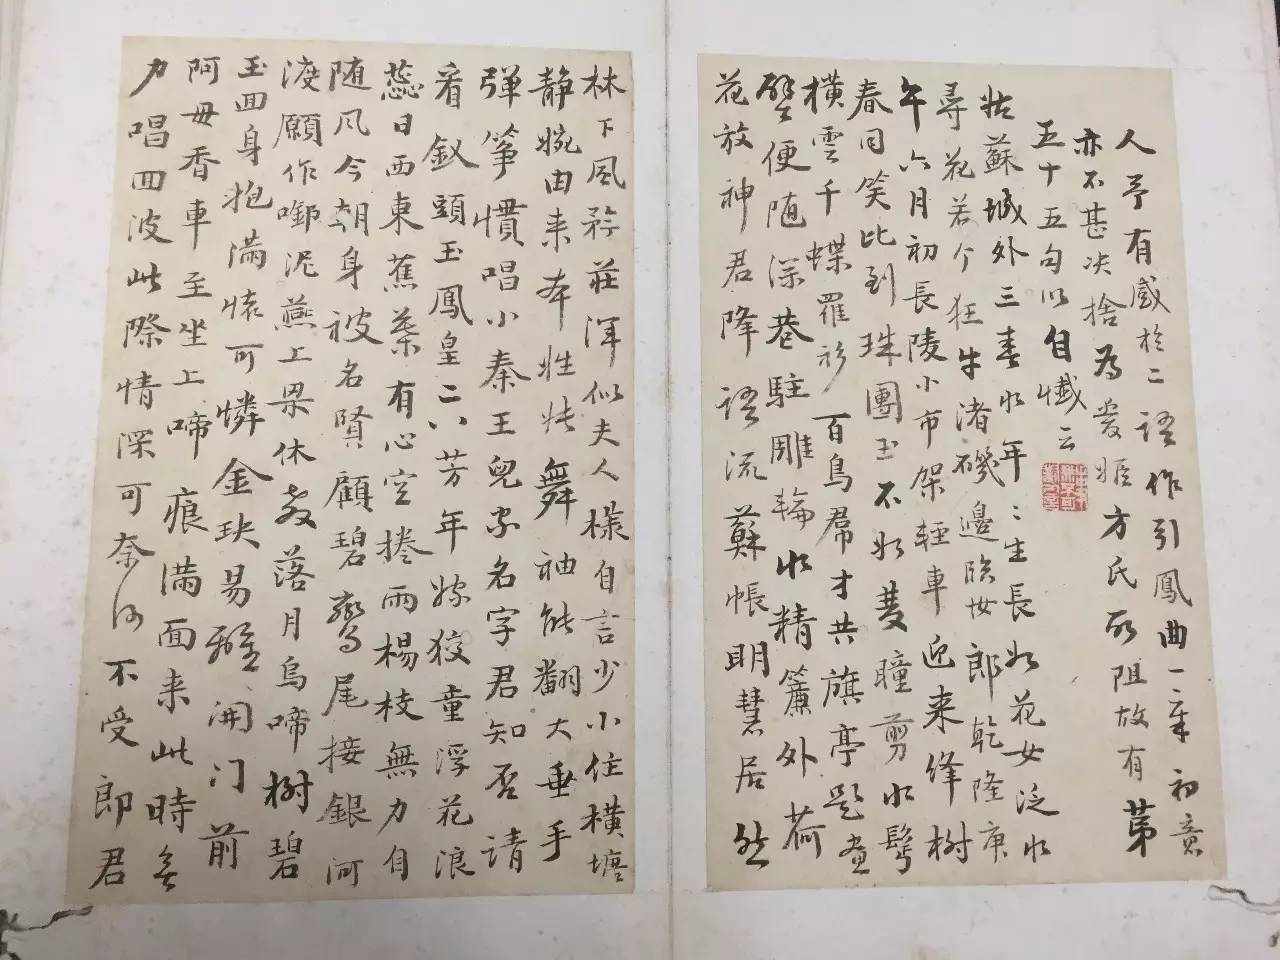 人予有感於二語作引鳳曲一章初意
亦不甚决捨為爰姬方氏所阻故有第
五十五句以自懺云
姑蘇城外三春水年〻生長如花女泛水
尋花若个狂牛渚磯邊臨汝郎乾隆庚
午六月初長陵小市架輕車迎来絳樹
春同笑比到珠團玉不如雙瞳剪水鬓
橫雲千蝶羅衫百鳥帬才共旗亭題畫
壁便随深巷駐雕輪水精簾外荷
花放神君降語流蘇帳明慧居然
林下風矜莊渾似夫人樣自言少小住橫塘
静婉由来本性情舞袖能翻大垂手
弹筝慣唱小秦王兒家名字君知否請
看釵頭玉鳳皇二八芳年嫁狡童浮花浪
蕊日西東蕉葉有心空捲雨楊枝無力自
随風今朝身被名賢顧碧鸞尾接銀河
渡願作啣泥燕上梁休教落月烏啼樹碧
玉回身抱滿懷可憐金玦易離開门前
阿母香車至坐上啼痕满面来此時無
力唱回波此際情深可奈何不受郎君